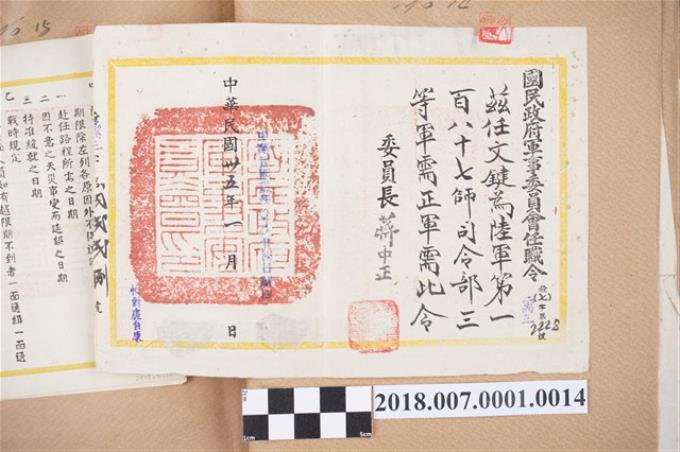 國民政府軍事委員會任職令
茲任文鍵為陸軍第一
百八十七師司令部三
等軍需正軍需此令
委員長 蔣中正
中華民國卅五年一月 日
期限除左列各原因外不
一 赴任路程所需之日期
二 因不意之天災事變而延誤之日期
三 特准緩就之日期
乙 戰時規定
人員如有越限期不到者一面通緝一面通
2018.007.0001.0014